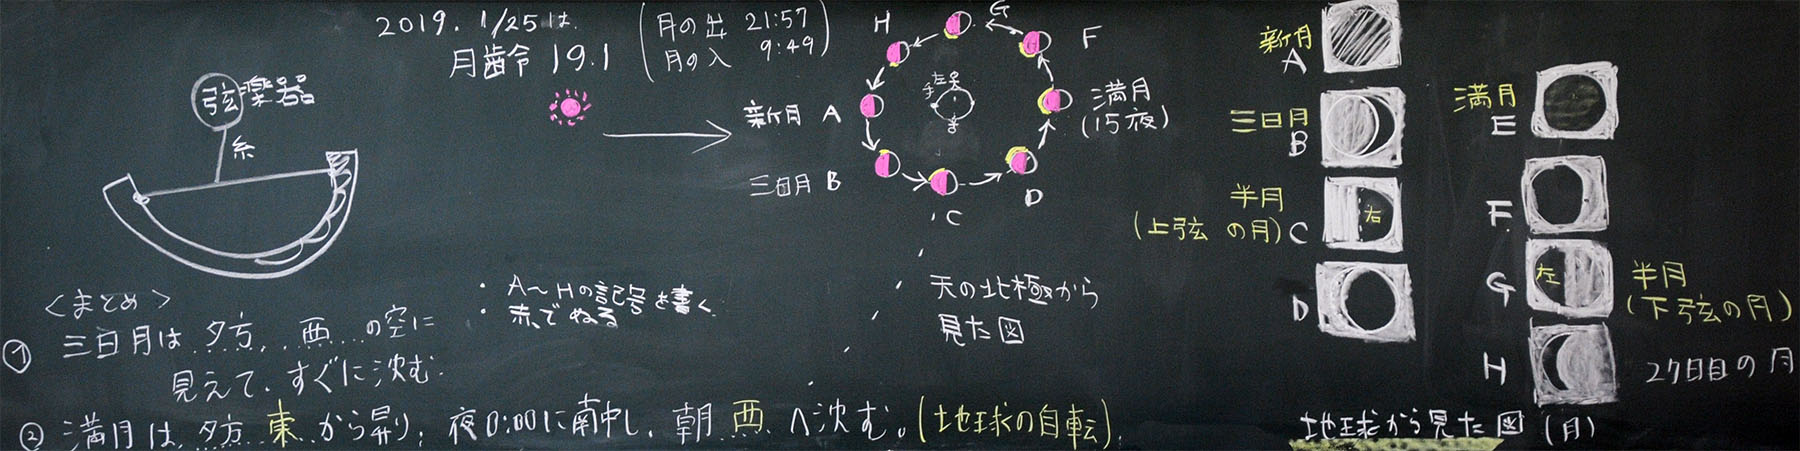 2019. 1/25は
月歯令 19.1
(月の出 21:57
月の入 9:49)
弦楽器
糸
<まとめ>
① 三日月は夕方、西の空に
見えて、すぐに沈む.
② 満月は、夕方 東から昇り、夜0:00に南中し、朝 西 へ沈む。(地球の自転)
・A〜Hの記号を書く
・赤でぬる
H
G
F
満月
(15夜)
新月 A
三日月 B
C
D
天の北極から
見た図
新月
A
三日月
B
半月
(上弦 の月) C
右
D
満月
E
F
G
左
半月
(下弦の月)
H
27日目の月
地球から見た図 (月)